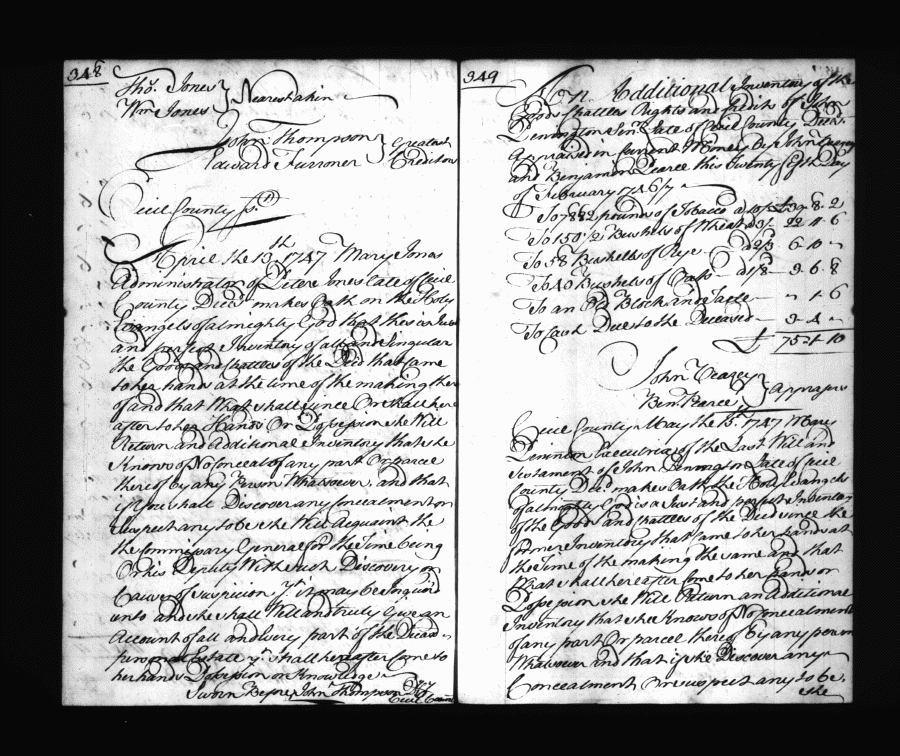 348
Thos. Jones } Nearest akin
Wm Jones
John Thompson } Greatest
Edward Furroner } Creditors
Cecil County ss.
April the 13th 1747 Mary Jones
Administrator of Peter Jones late of Cecil
County Decd. makes Oath on the Holy
Evangels of almighty God that this is a Just
and perfect Inventory of all and Singular
the Goods and Chattles of the Decd that Came
to her hands at the time of the making there
of and that What shall since Or shall here
after to her Hands Or Possession she Will
Return and Additional Inventory that she
Knows of No Conceal of any part Or parcel
thereof by any Person Whatsoever and that
if you shall Discover any Concealment or
suspect any to be she Will Acquaint the
the Commissary General for the Time being
Or his Deputy With such Discovery or
Cause of suspicion yt. it may be Inquired
unto and she shall Well and truly Give an
Account of all and Every part of the Deceds
personal Estate yt. shall hereafter Come to
her hands Possession or Knowledge
Sworn Before John Thompson Dty
Cecil County
349
An Additional Inventory of the
Goods Chattles Rights and Credits of John
Pennington Senr. Late of Cecil County Decd.
Appraised in Current Money by John Veazey
and Benjamin Pearce this Twenty Day
of February 1746/7
To 7882 pounds of Tobacco a 10/ £39. 8. 2
To 150 1/2 Bushels of Wheat a 3/ 22 11 6
To 58 Bushells of Rye a 2/3 6 10 "
To 40 Bushels of Oats a 1/8 3. 6. 8
To an Old Block and Tacle " 1 6
To Cash Due to the Deceased 3. 4. "
£ 75 1 10
John Veazey } Appraisrs
Ben Pearce
Cecil County May the 15. 1747 Mary
Pennington Executrix of the Last Will and
Testament of John Pennington Late of Cecil
County Decd. makes Oath the Holy Evangels
of almighty God is a Just and perfect Inventory
of the Goods and Chattles of the Decd since the
former Inventory that Came to her hands at
the Time of the making the same and that
What shall hereafter Come to her hands or
Possession she Will Return an Additional
Inventory that she Knows of No Concealment
of any part Or parcel thereof by any person
Whatsoever and that if she Discover any
Concealment Or suspect any to be.
she